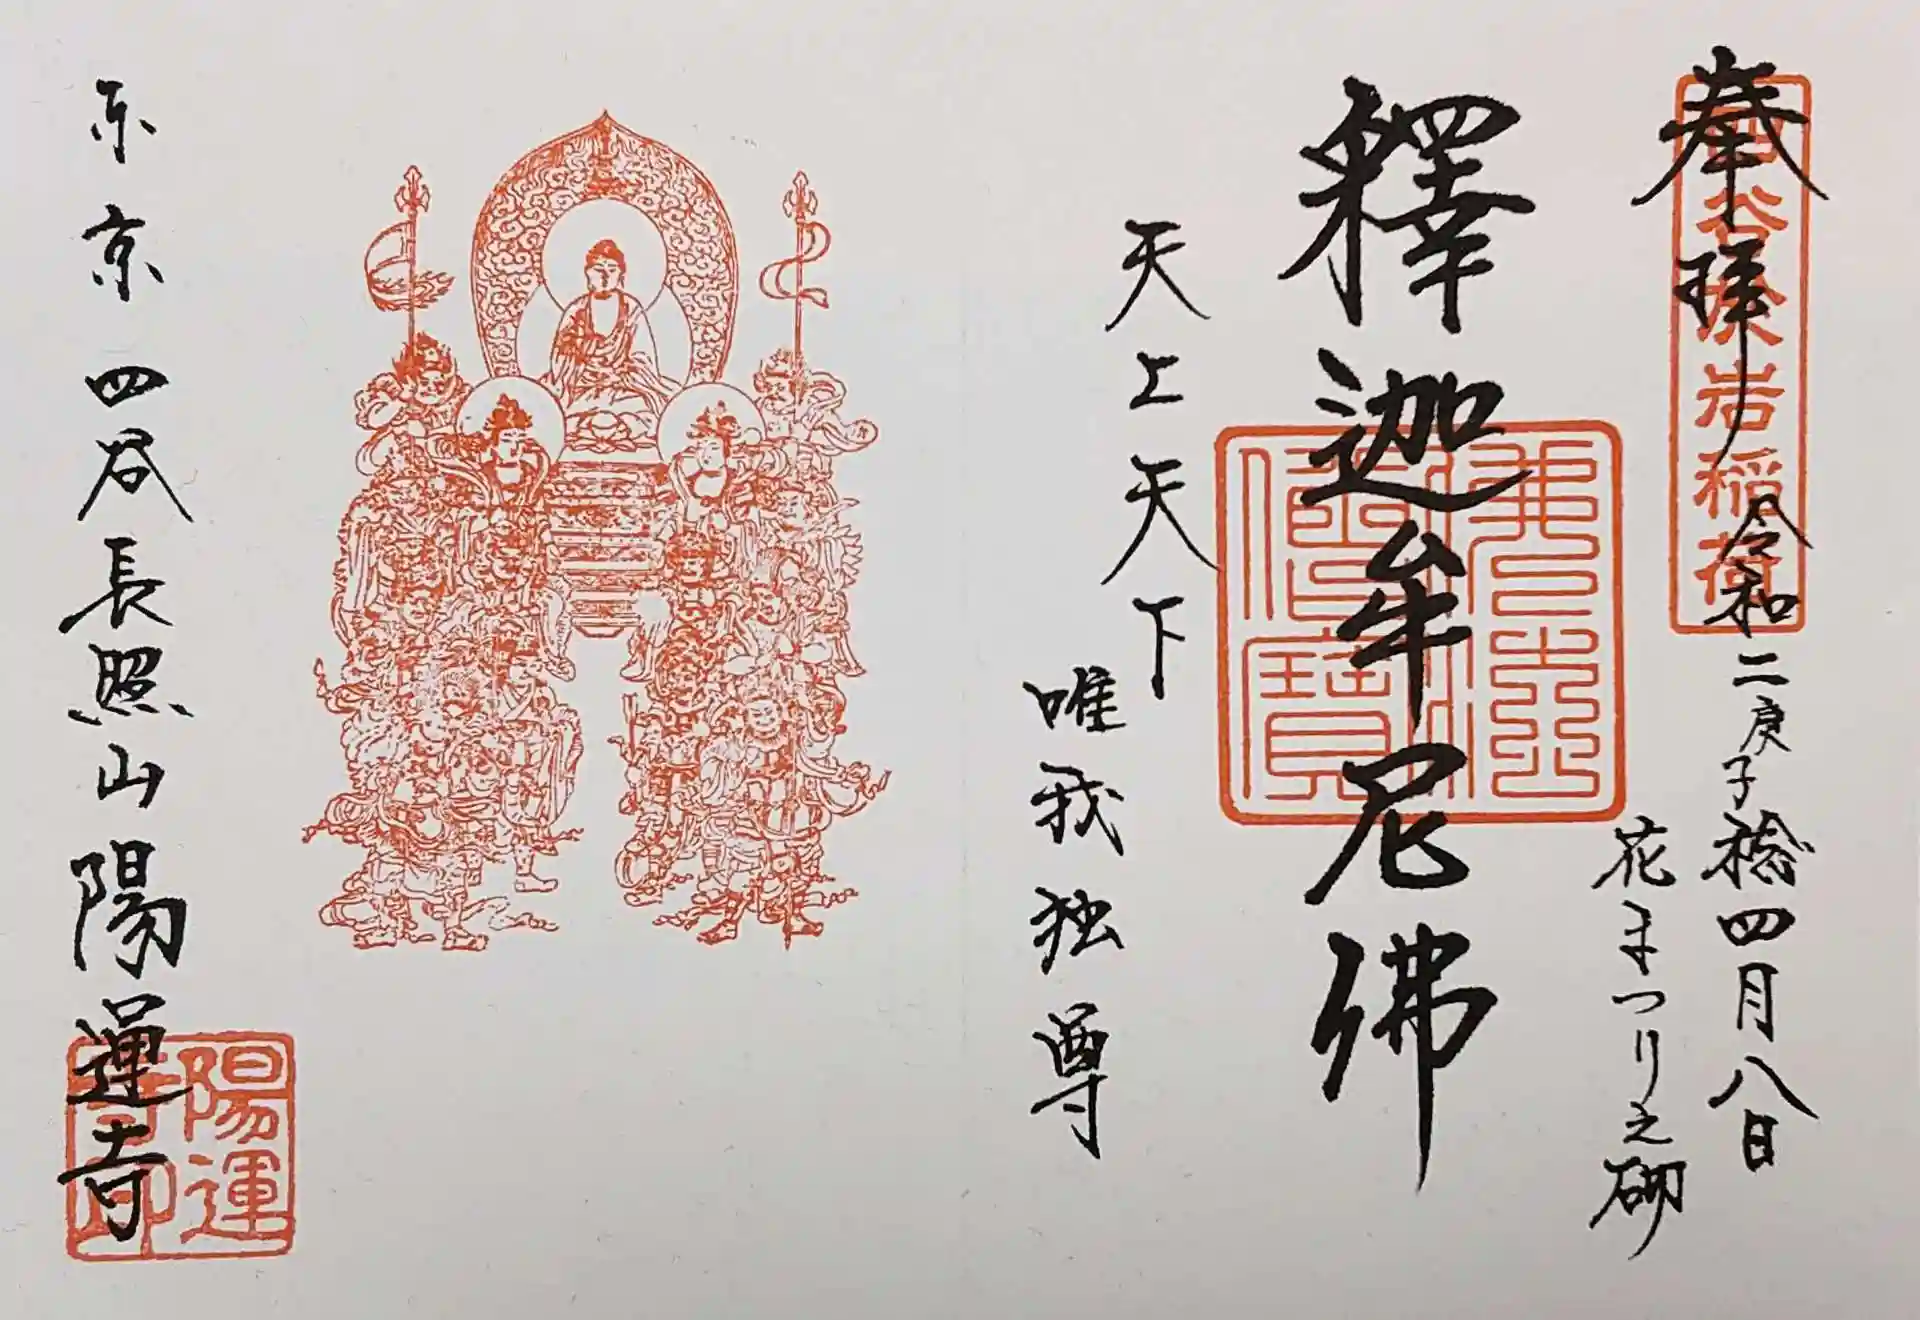 奉拝
四谷於岩稲荷
令和二庚子稔四月八日
花まつり之砌
釋迦牟尼佛
佛法僧寶
天上天下
唯我独尊
东京四谷長照山陽運寺
陽運寺印